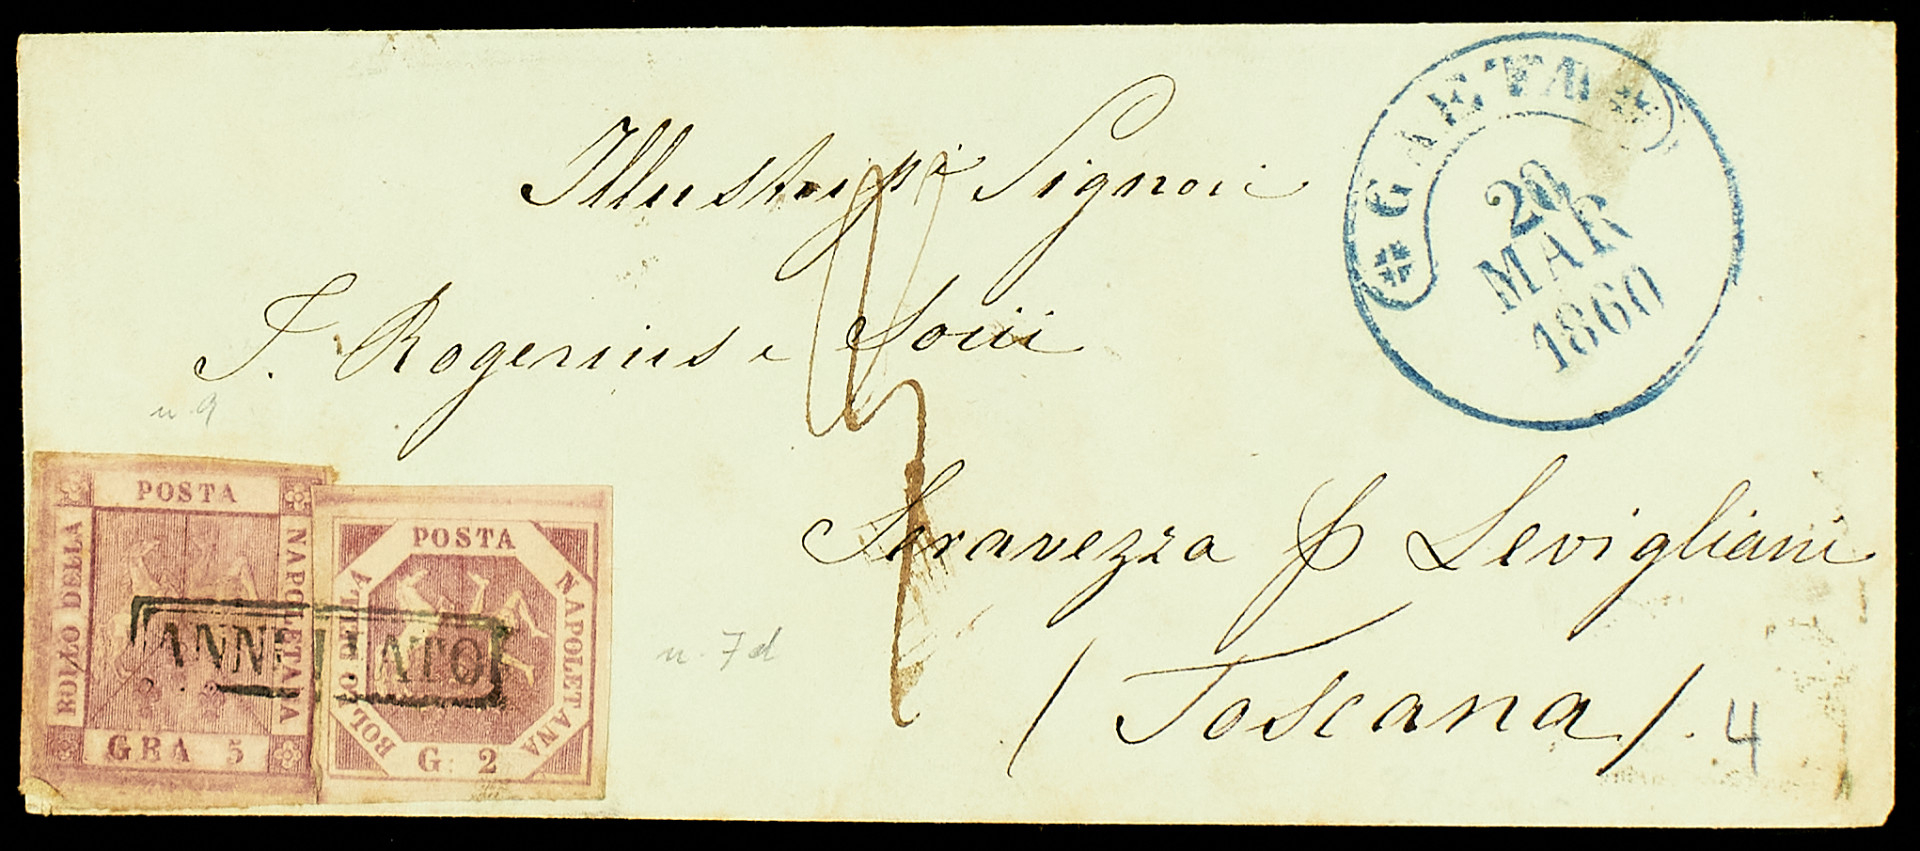 Illustri Signori
J. Rogerius e Socii
Seravezza p Levigliani
(Toscana).
GAETA
20
MAR
1860
n. 9
POSTA
NAPOLETANA
BOLLO DELLA
GRA 5
POSTA
NAPOLETANA
BOLLO DELLA
G. 2
ANNULLATO
n. 7d
4